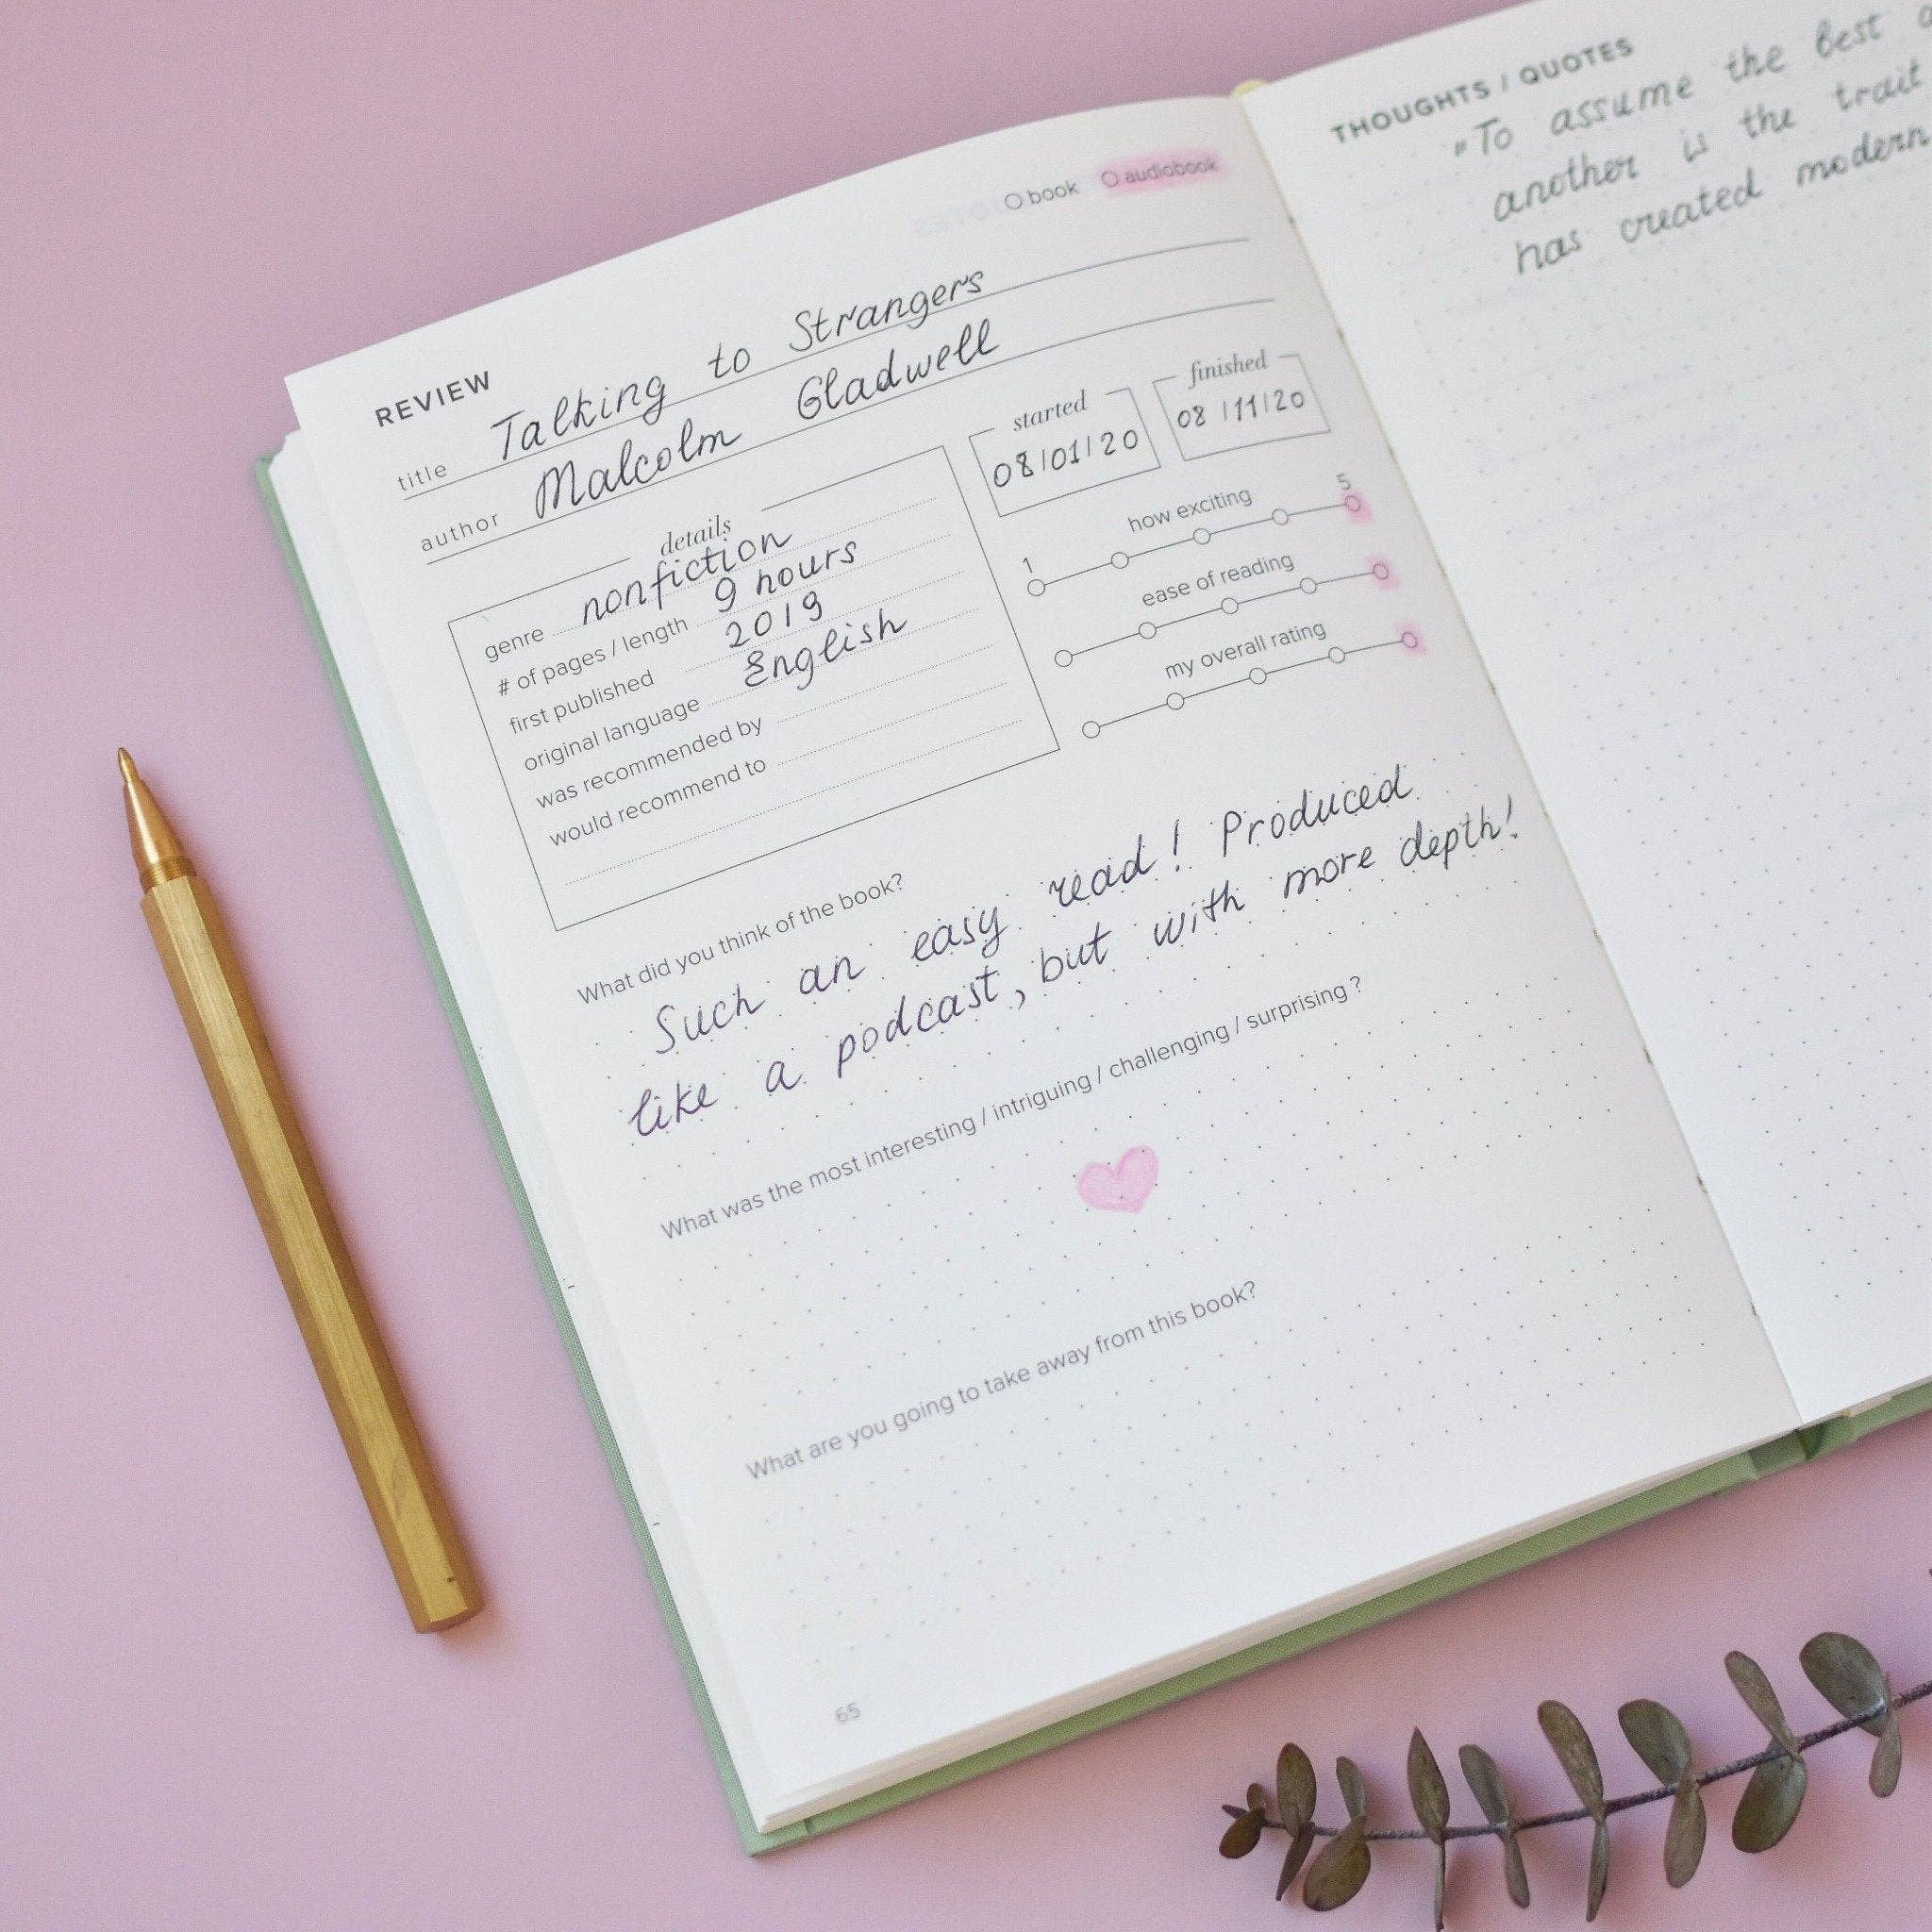 REVIEW
book audiobook
title Talking to Strangers
author Malcolm Gladwell
details
genre nonfiction
# of pages / length 9 hours
first published 2019
original language English
was recommended by
would recommend to
started
08/01/20
finished
08/11/20
how exciting
1 5
ease of reading
my overall rating
What did you think of the book?
Such an easy read! Produced
like a podcast, but with more depth!
What was the most interesting / intriguing / challenging / surprising?
What are you going to take away from this book?
65
THOUGHTS / QUOTES
"To assume the best
another is the trait
has created modern